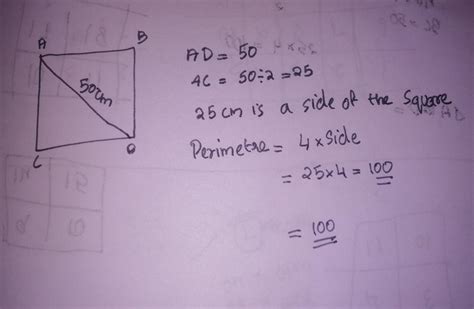 A
B
50cm
C
D
AD = 50
AC = 50÷2 = 25
25 cm is a side of the square
Perimetre = 4 × side
= 25×4 = 100
= 100